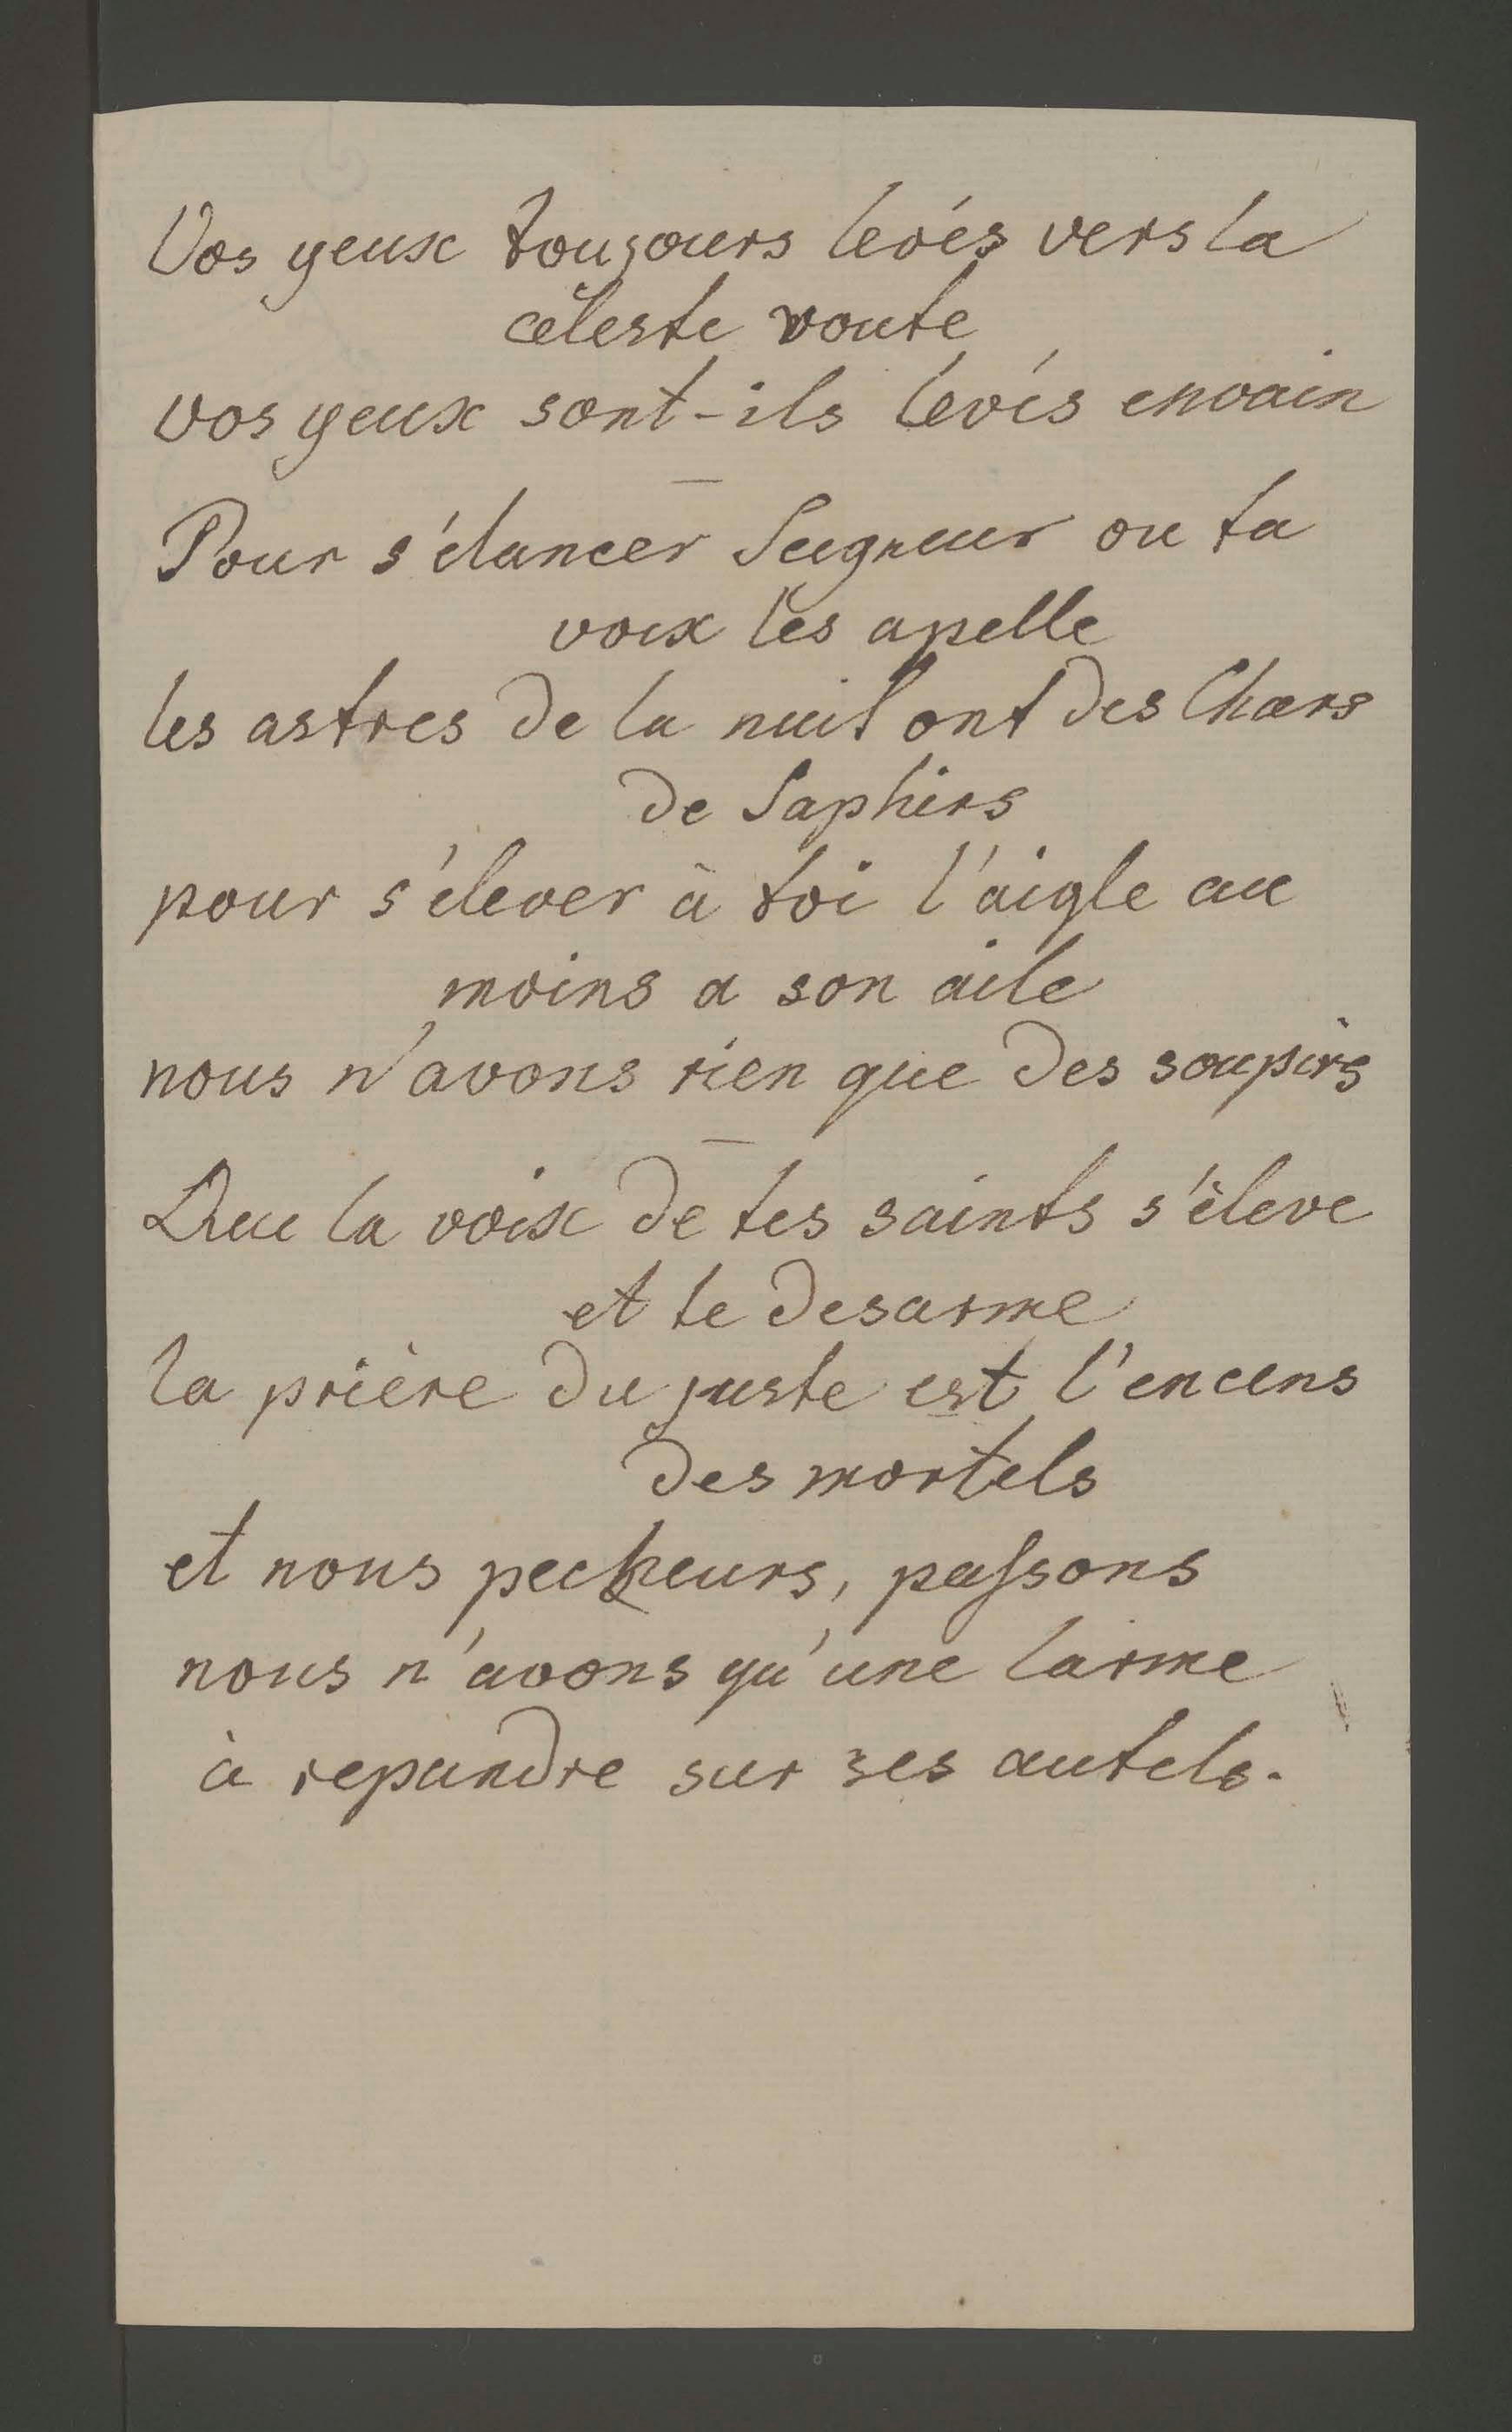 Vos yeux toujours levés vers la
céleste voute
vos yeux sont-ils levés envain
—
Pour s'élancer Seigneur ou ta
voix les apelle
les astres de la nuit ont des Chars
de Saphirs
pour s'élever à toi l'aigle au
moins a son aile
nous n'avons rien que des soupirs
—
Que la voix de tes saints s'élève
et te desarme
la prière du juste est l'encens
des mortels
et nous pecheurs, passons
nous n'avons qu'une larme
à repandre sur ses autels.